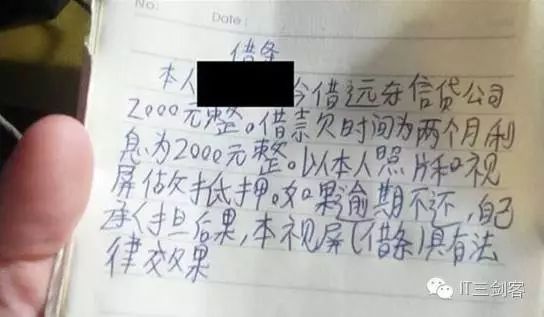 No:
Date:
借条
本人 今借远夺信贷公司
2000元整。借款欠时间为两个月利
息为2000元整。以本人照片和视
屏做抵押。如果逾期不还,自己
承担后果,本视屏(借条)具有法
律效果
IT三剑客